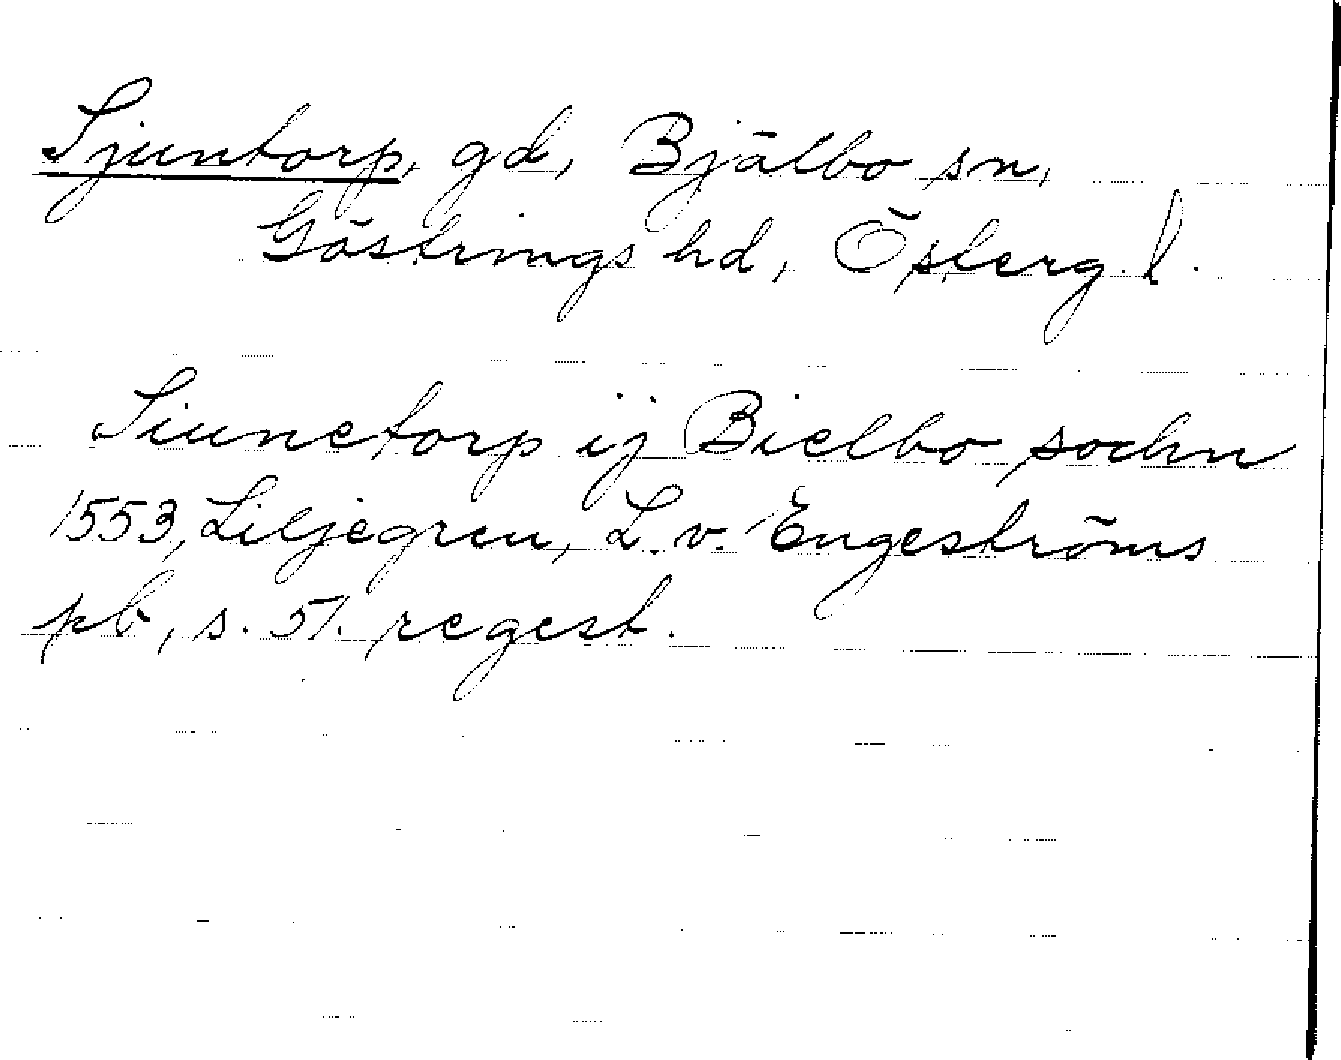 Sjuntorp, gd, Bjälbo sn,
Göstrings hd, Österg. l.
Siunetorp ij Bielbo sochn
1553, Liljegren, L. v. Engeströms
pb, s. 51. regest.